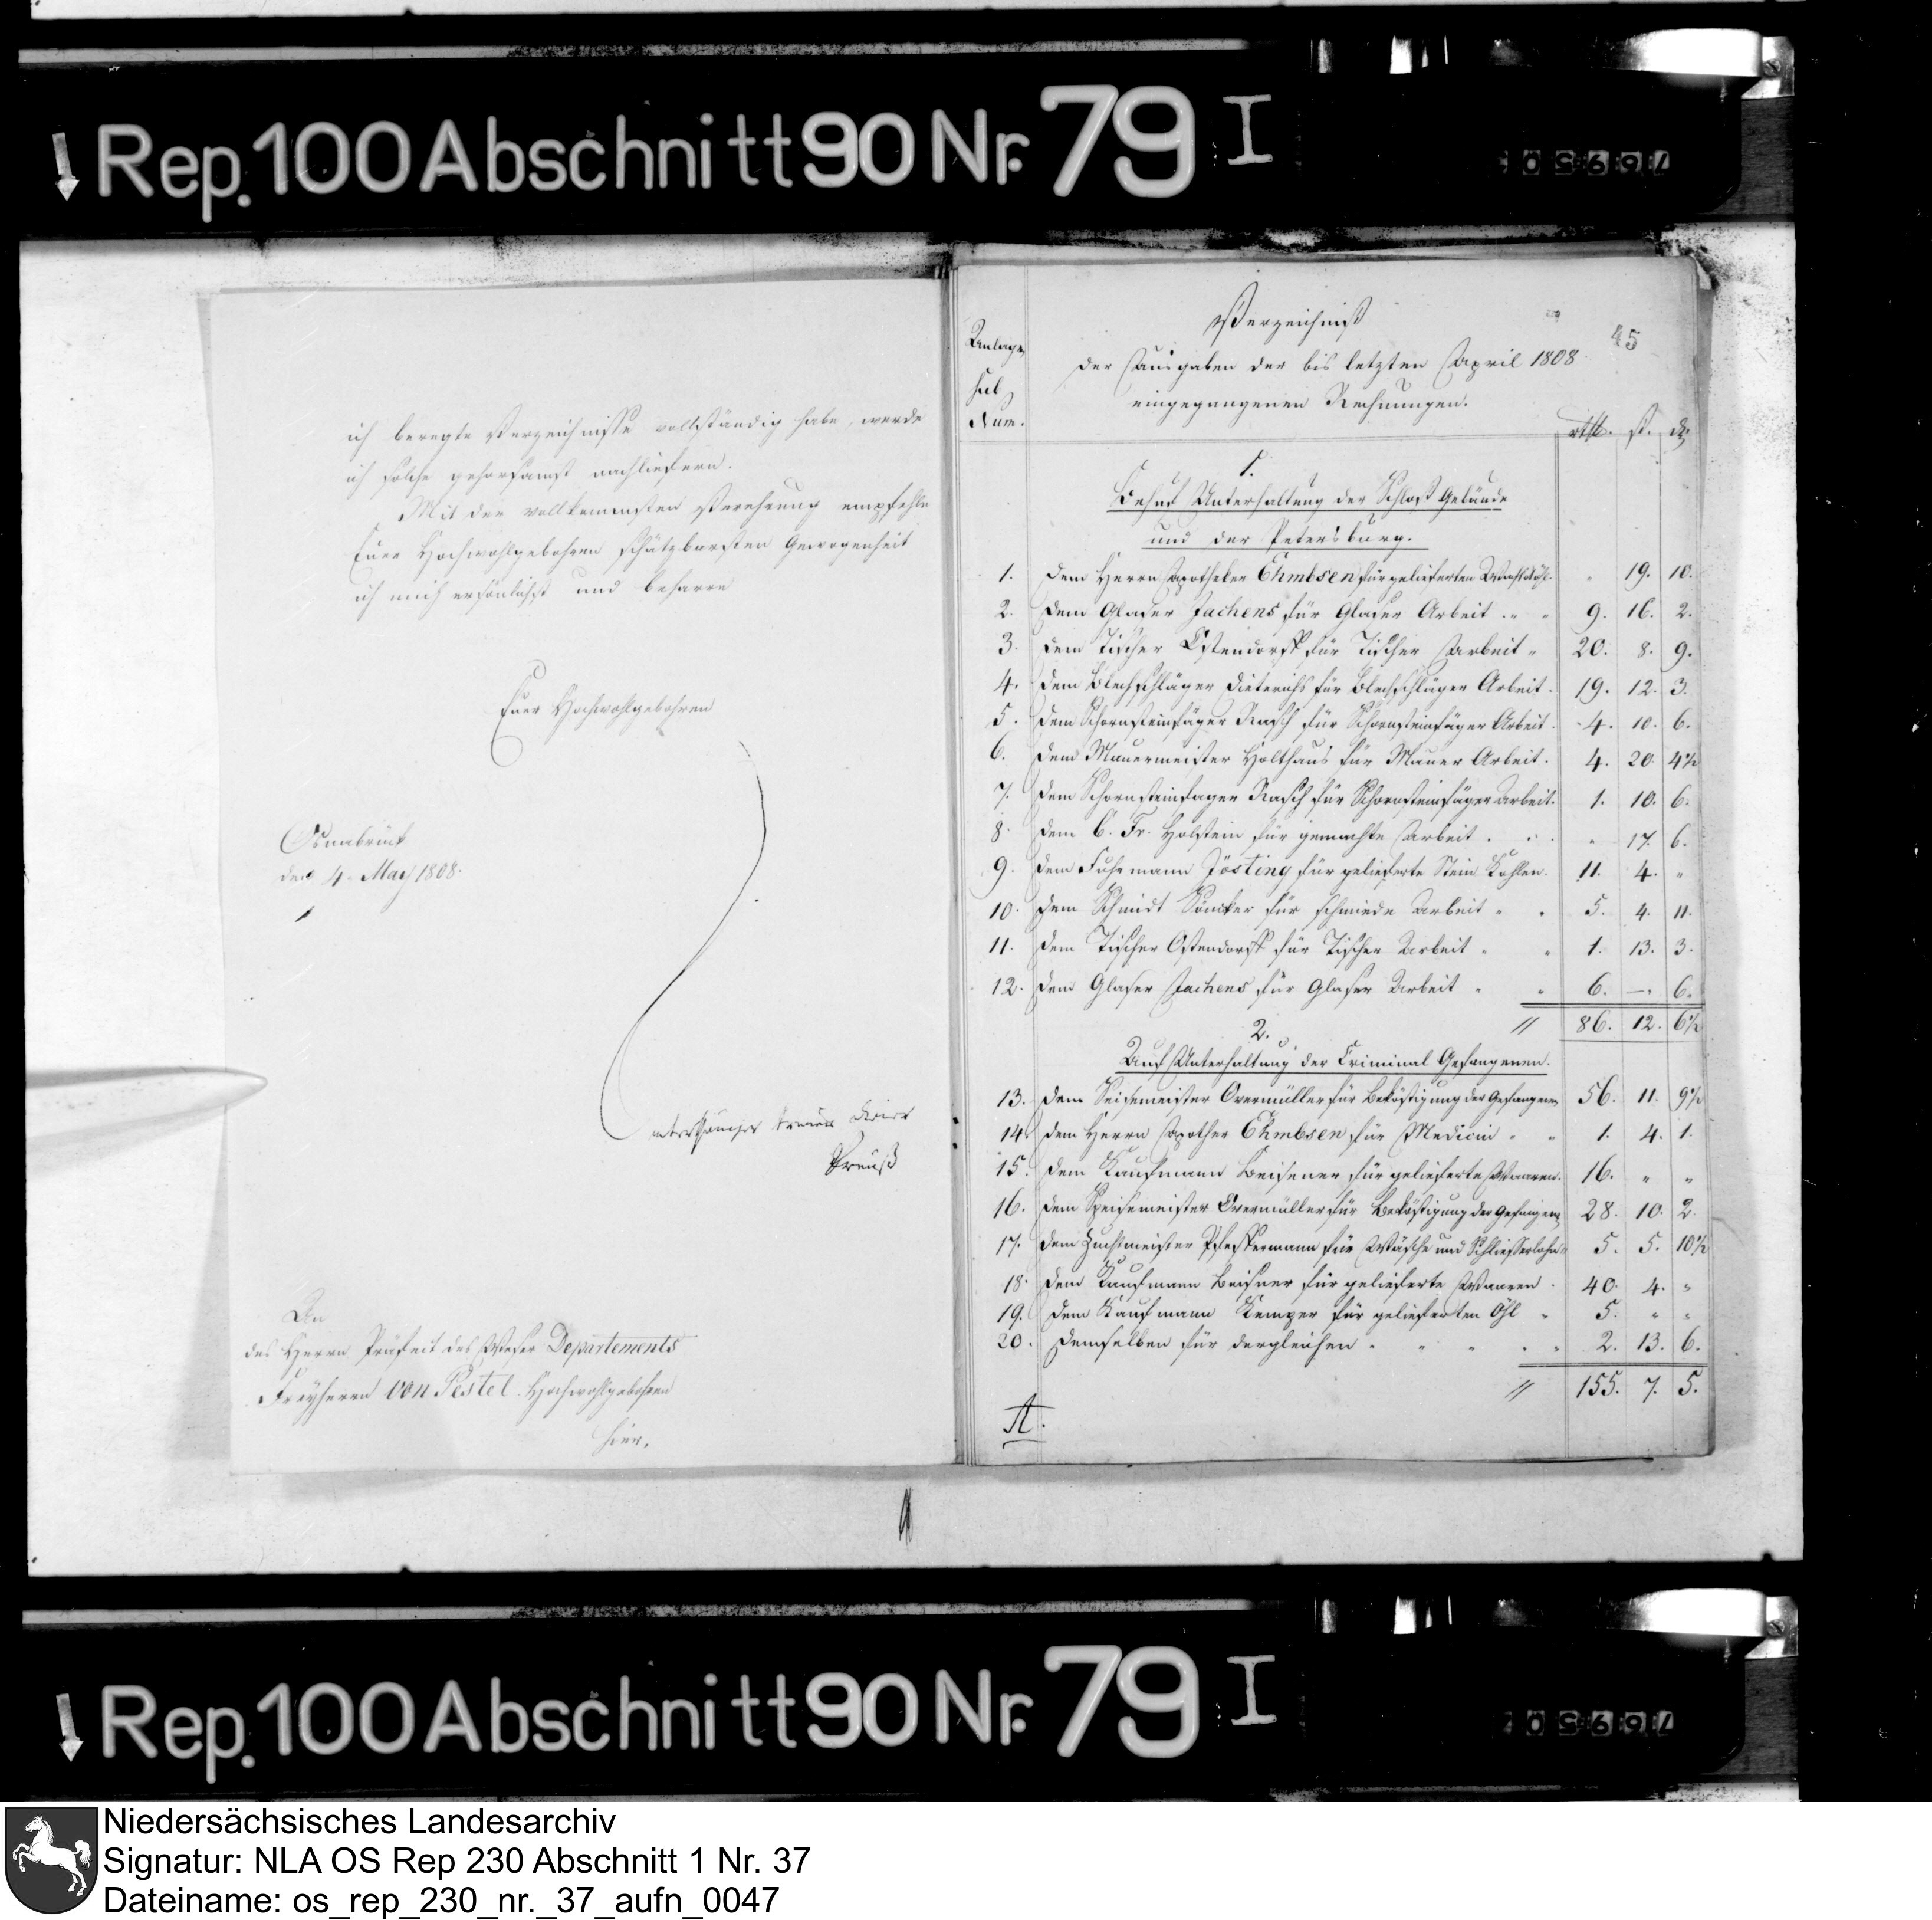 Rep. 100 Abschnitt 90 Nr. 79 I
76950
ich beregte Verzeichnisse vollständig habe, werde
ich solche gehorsamst nachliefern.
Mit der vollkommensten Verehrung empfehle
Euer Hochwohlgebohren schätzbarsten Gewogenheit
ich mich und beharre
Euer Hochwohlgebohren
Osnabrück
den 4. May 1808.
Preuß
An
des Herrn Präfect des Weser Departements
Freyherrn von Pestel Hochwohlgebohren
hier.
45
Anlage
sub
Num.
Verzeichniß
der Ausgaben der bis letzten April 1808
eingegangenen Rechnungen.
rthl. ß. d.
1.
Behuf Unterhaltung der Schloß Gebäude
und der Petersburg.
1. dem Herrn Apotheker Ehmbsen für gelieferten " 19. 10.
2. dem Glaser Jachens für Glaser Arbeit " " 9. 16. 2.
3. dem Tischer Ostendorff für Tischer Arbeit " 20. 8. 9.
4. dem Blechschläger Dieterichs für Blechschläger Arbeit. 19. 12. 3.
5. dem Schornsteinfäger Rasch für Schornsteinfäger Arbeit. 4. 10. 6.
6. dem Mauermeister Holthaus für Mauer Arbeit. 4. 20. 4½
7. dem Schornsteinfager Rasch für Schornsteinfäger Arbeit. 1. 10. 6.
8. dem C. Fr. Holstein für gemachte Arbeit . . " 17. 6.
9. dem Fuhrmann Jösting für gelieferte Stein Kohlen. 11. 4. "
10. dem Schmidt für schmiede Arbeit " " 5. 4. 11.
11. dem Tischer Ostendorff für Tischer Arbeit " " 1. 13. 3.
12. dem Glaser Jachens für Glaser Arbeit " " 6. —. 6.
// 86. 12. 6½
2.
Auf Unterhaltung der Criminal Gefangenen.
13. dem Speisemeister Overmüller für Beköstigung der Gefangenen 56. 11. 9½
14. dem Herrn Apother Ehmbsen für Medicin " " 1. 4. 1.
15. dem Kaufmann Beisener für gelieferte Waaren. 16. " "
16. dem Speisemeister Overmüller für Beköstigung der Gefangenen 28. 10. 2.
17. dem Zuchtmeister Pfeffermann für Wäsche und Schliesserlohn " 5. 5. 10½
18. dem Kaufmann Beisner für gelieferte Waaren . 40. 4. "
19. dem Kaufmann Kemper für gelieferten Öhl " 5. " "
20. demselben für dergleichen " " " " " 2. 13. 6.
// 155. 7. 5.
A.
Rep. 100 Abschnitt 90 Nr. 79 I
76950
Niedersächsisches Landesarchiv
Signatur: NLA OS Rep 230 Abschnitt 1 Nr. 37
Dateiname: os_rep_230_nr._37_aufn_0047